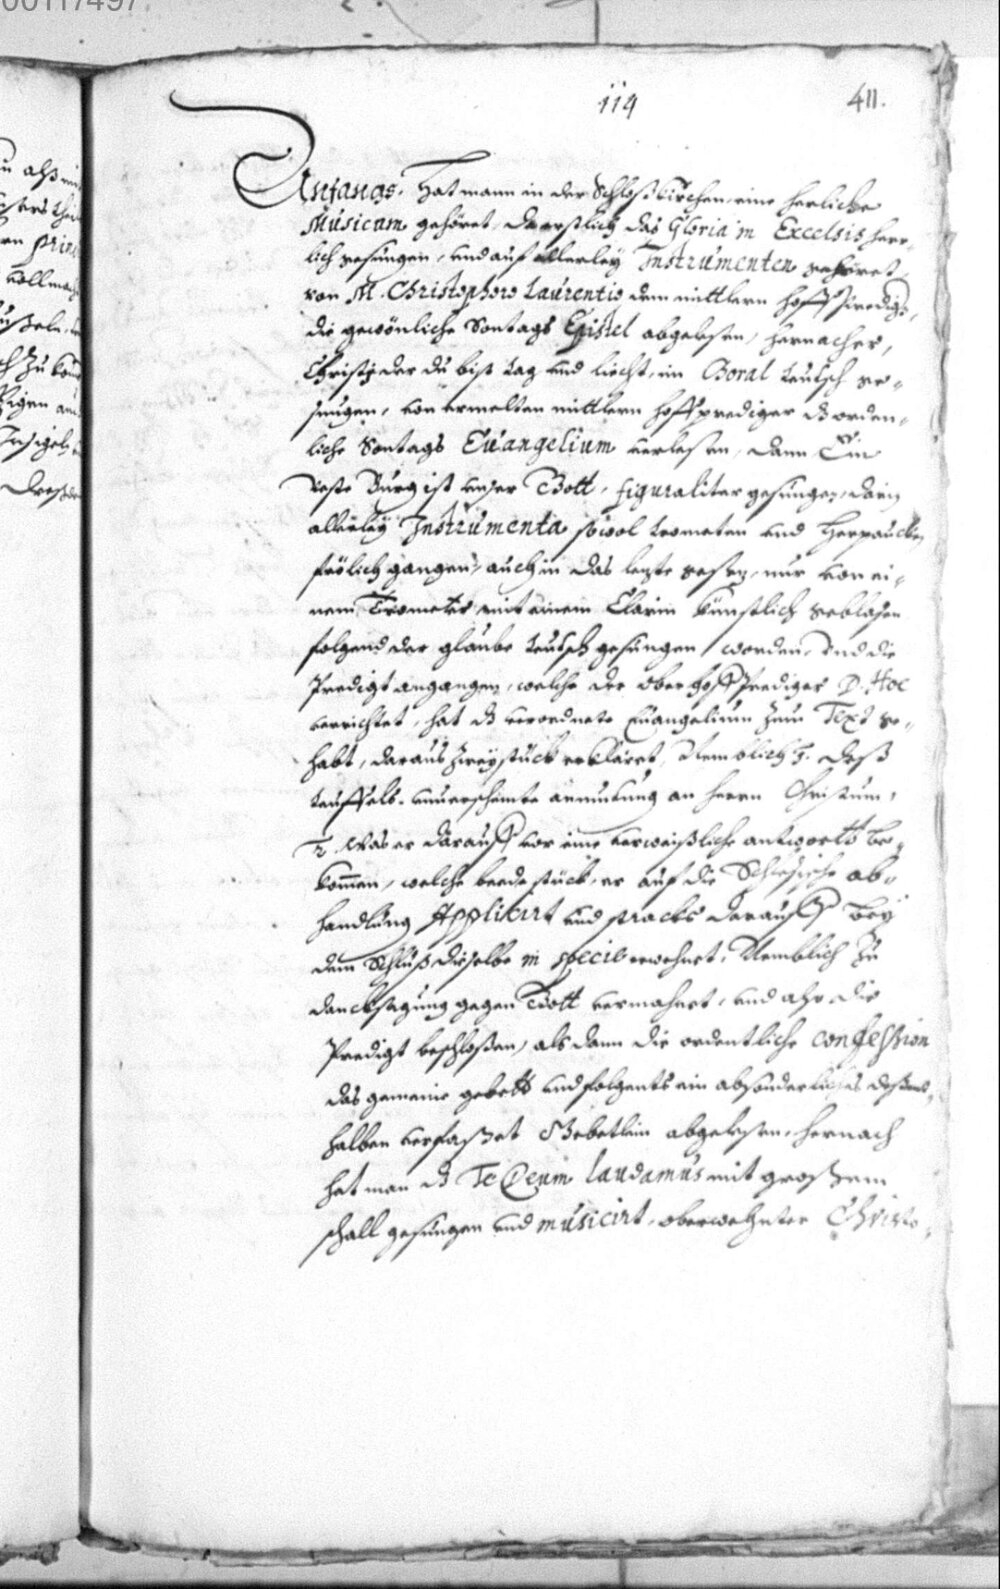 00117497
114 411.
Anfangs. Hat mann in der Schloßkirchen eine herliche
Musicam gehöret, da erstlich das Gloria in Excelsis herr-
lich gesungen, und auf allerley Instrumenten gehöret,
von M. Christophoro Laurentio dem mittlern Hoff Predigr,
die gewönliche Sontags Epistel abgelesen, hernacher,
Christe der du bist tag und liecht, im Coral teutsch ge-
sungen, von ermelten mittlern hoffprediger dz orden-
liche Sontags Euangelium verlesen, dann Ein
veste Burg ist unser Gott, figuraliter gesungen, darin
allerley Instrumenta sowol trometen und Herpaucken
frölich gangen, auch in das lezte gesez, nur von ei-
nem Trometer mit einem Clarin künstlich geblasen
folgend der glaube teutsch gesungen worden, und die
Predigt angangen, welche der Oberhoff Prediger D. Hoe
verrichtet, hat dz verordnete Euangelium zum Text ge-
habt, daraus zwey stück erkläret, Nemblich 1. deß
teuffels unverschämte anmutung an herrn Christum,
2. Was er darauff vor eine verweißliche antwortt be-
kommen, welche beede stück, er auf die Schlesische ab-
handlung Applicirt und stracks darauff bey
dem Schluß dieselbe in specie erwehnet, Nemblich zu
dancksagung gegen Gott vermahnet, und also die
Predigt beschloßen, als dann die ordentliche confession
das gemeine gebett und folgents ein absonderliches deßent-
halben verfaßet Gebetlein abgelesen, hernach
hat man dz Te Deum laudamus mit großem
schall gesungen und musicirt, oberwehnter Christo-